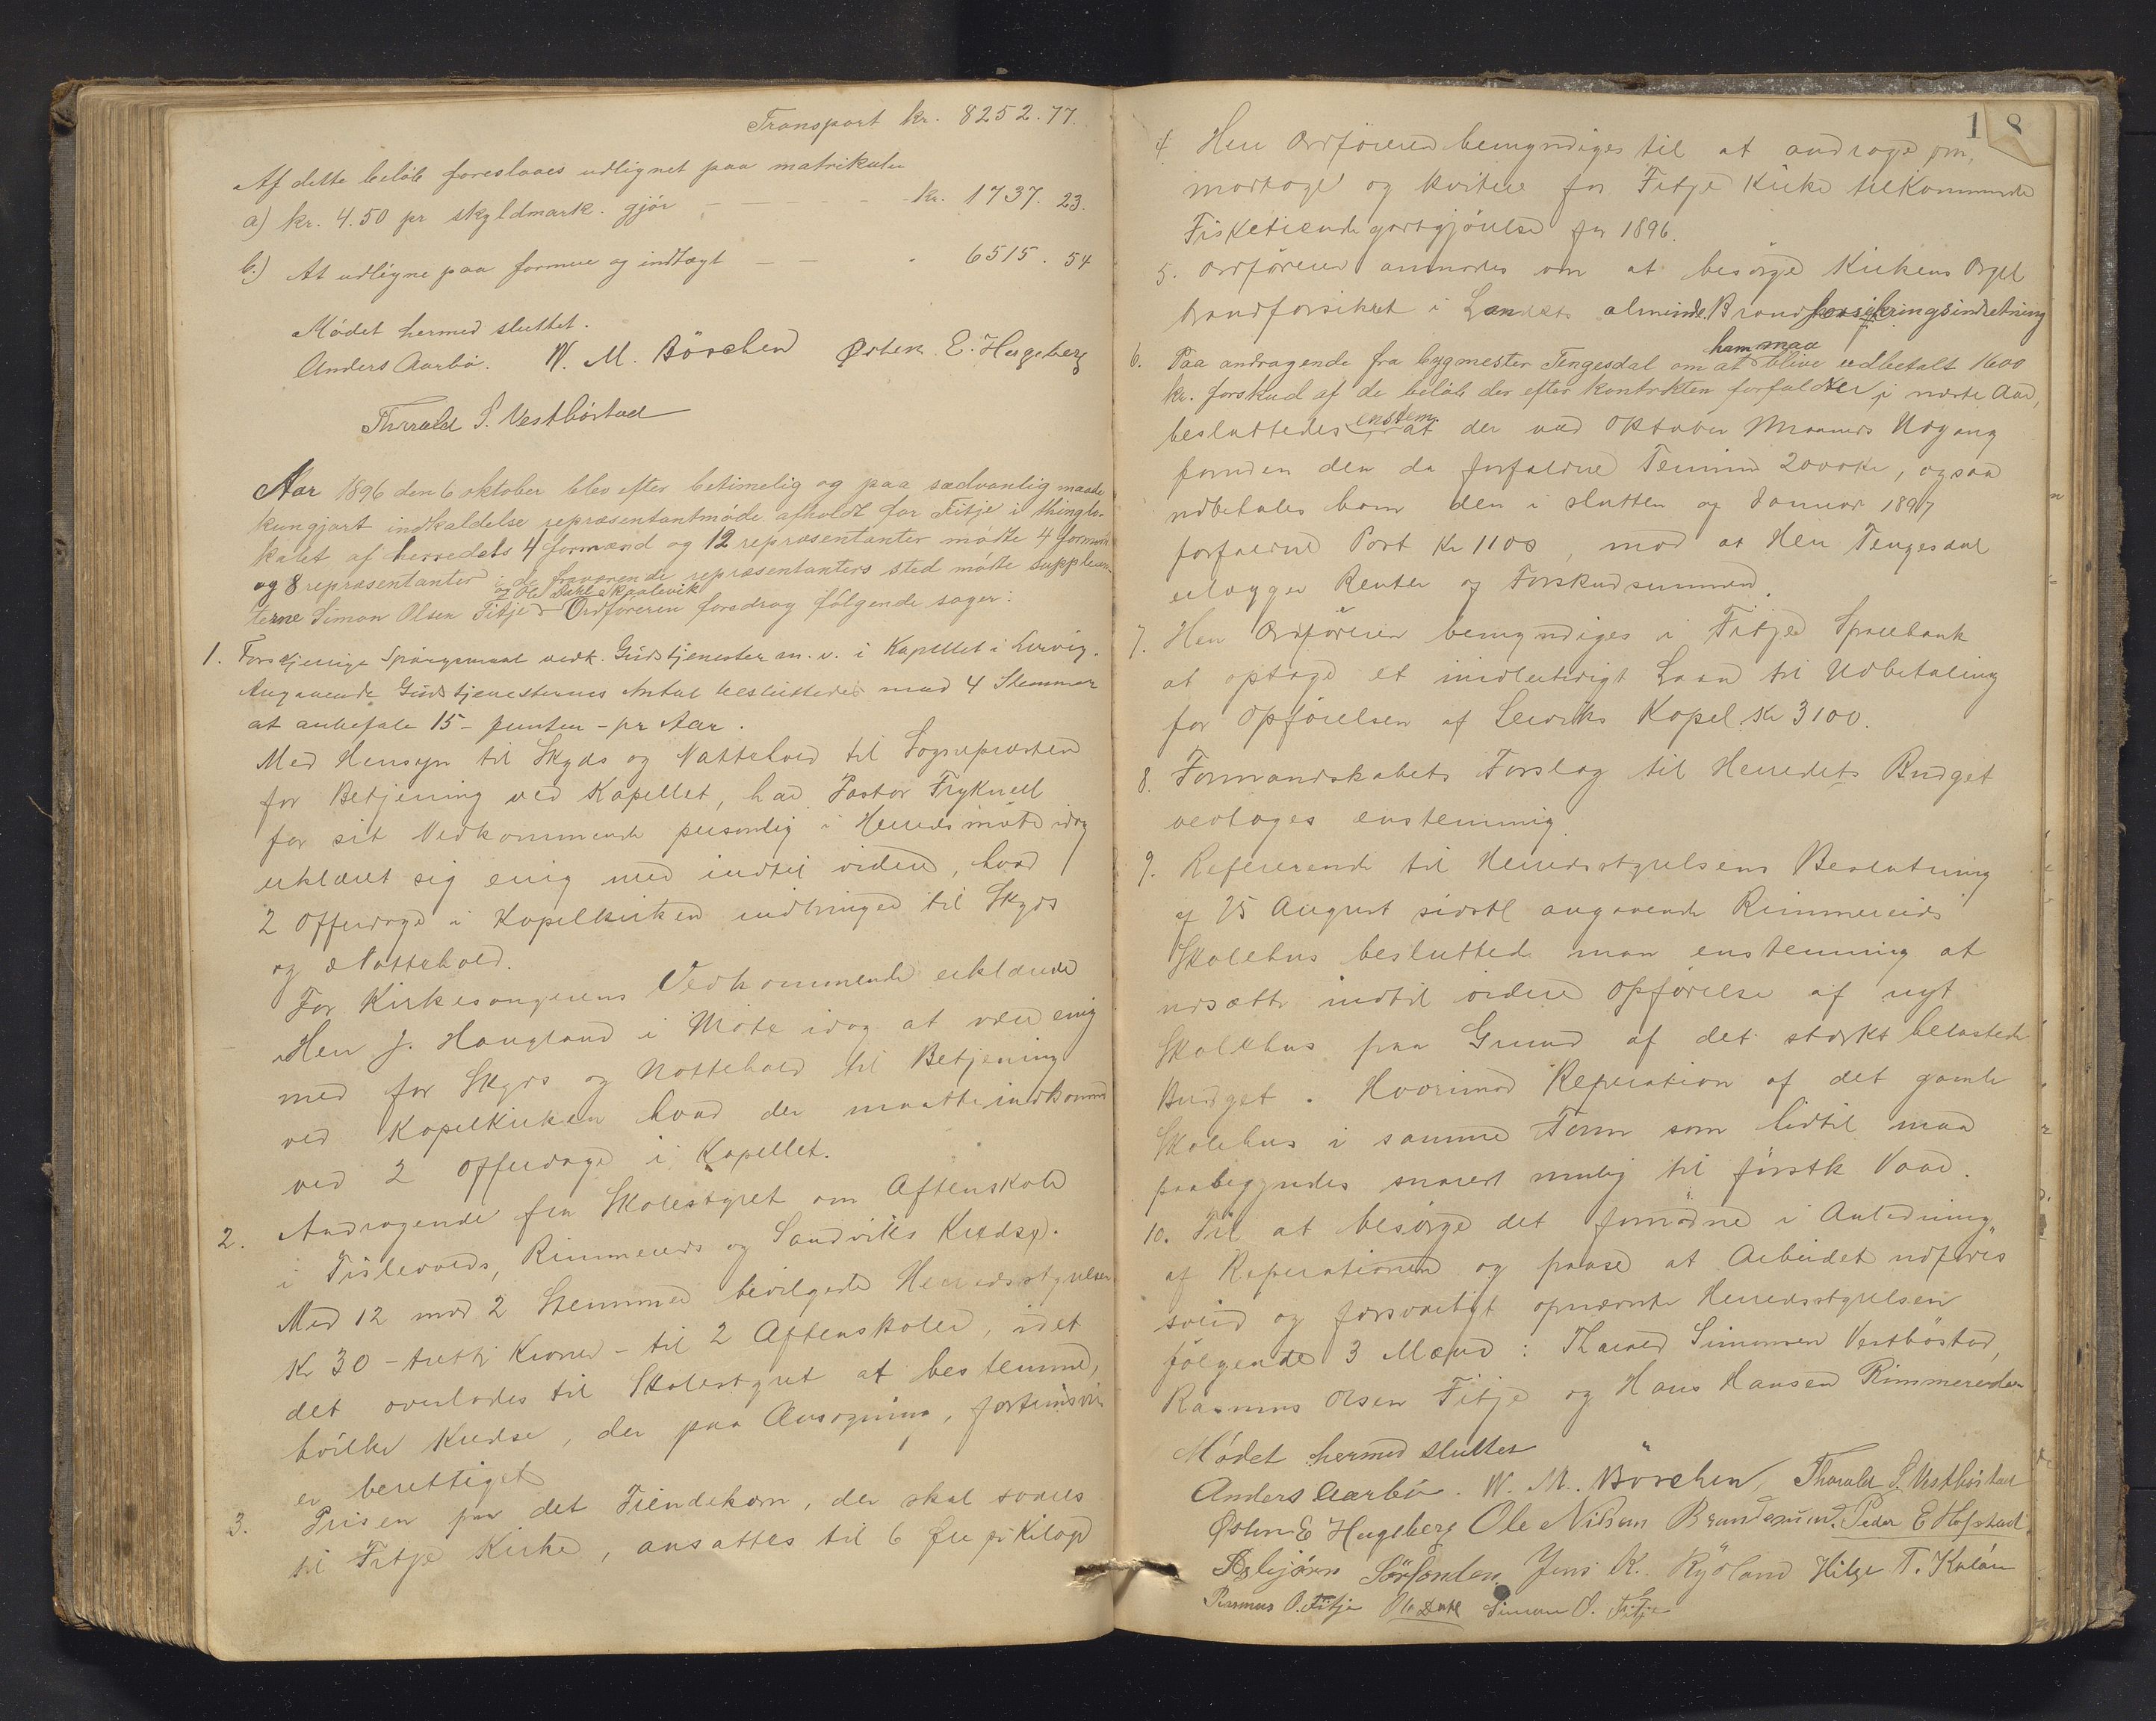 Transport kr. 8252.77.
Af dette beløb foreslaaes udlignet paa matrikulen
a) kr. 4.50 pr skyldmark. gjør - - - - - kr. 1737. 23.
b.) At udligne paa formue og indtægt - - " 6515. 54
Mødet hermed sluttet.
Anders Aarbø. W. M. Børchen Østen E. Hageberg
Thorald S. Vestbøstad
Aar 1896 den 6 oktober blev efter betimelig og paa sædvanlig maade
kungjort indkaldelse repræsentantmøde afholdt for Fitje i thinglo-
kalet af herredets 4 formænd og 12 repræsentanter mødte 4 formænd
og 8 repræsentanter i de fraværende repræsentanters sted mødte supplean-
og Ole Dahl Skaalevik
terne Simon Olsen Fitje Ordføreren foredrog følgende sager:
1. Forskjellige Spørgsmaal vedk. Gudstjenester m. v. i Kapellet i Lervig.
Angaaende Gudstjenesternes Antal besluttedes med 4 Stemmer
at anbefale 15 - femten - pr Aar.
Med Hensyn til Skyds og Nattehold til Sognepresten
for Betjening ved Kapellet, har Pastor
for sit Vedkommende personlig i Herredsmøte idag
erklæret sig enig med indtil videre, hvad
2 Offerdage i Kapelkirken indbringer til Skyds
og Nattehold.
For Kirkesangerens Vedkommende erklærede
Herr J. Haugland i Møte idag at være enig
med for Skyds og Nattehold til Betjening
ved Kapelkirken hvad der maatte indkomme
ved 2 Offerdage i Kapellet.
2. Andragende fra Skolestyret om Aftenskole
i Fislevolds, Rimmereids og Sandviks Kredse.
Med 12 mod 2 Stemmer bevilgede Herredsstyrelsen
Kr 30 - tretti Kroner - til 2 Aftenskoler, idet
det overlodes til Skolestyret at bestemme,
hvilke Kredse, der paa Ansøgning, fortrinsvis
er berettiget
3. Prisen paa det Tiendekorn, der skal svares
til Fitje Kirke, ansattes til 6 Øre pr Kilogr
18
4. Herr Ordføreren bemyndiges til at andrage om,
modtage og kvitere for Fitje Kirke tilkommende
Fisketiendegodtgjørelse for 1896.
5. Ordføreren anmodes om at besørge Kirkens Orgel
brandforsikret i Landets alminde. Brandforsikringsindretning
ham maa
6. Paa andragende fra bygmester Tengesdal om at blive udbetalt 1600
kr. forskud af de beløb der efter kontrakten forfalder i næste Aar,
enstem.
besluttedes at der ved Oktober Maaneds Udgang
foruden den da forfaldne Termin 2000 kr, ogsaa
udbetales ham den i slutten og Januar 1897
forfaldne Post Kr 1100, mod at Herr Tengesdal
erlægger Renter og Forskudsummen.
7. Herr Ordføreren bemyndiges i Fitje Sparebank
at optage et midlertidigt Laan til Udbetaling
for Opførelsen af Lerviks Kapel Kr 3100.
8. Formandskabets Forslag til Herredets Budget
vedtoges enstemmig.
9. Refererende til Herredsstyrelsens Beslutning
af 25 August sidstl angaaende Rimmereids
Skolehus besluttede man enstemmig at
udsætte indtil videre Opførelse af nyt
Skolehus paa Grund af det stærkt belastede
Budget. Hvorimod Reperation af det gamle
Skolehus i samme Form som hidtil maa
paabegyndes snarest mulig til førstk Vaar.
10. Til at besørge det fornødne i Anledning
af Reperationen og paase at Arbeidet udføres
solid og forsvarligt opnævnte Herredsstyrelsen
følgende 3 Mænd: Thorald Simonsen Vestbøstad,
Rasmus Olsen Fitje og Hans Hansen Rimmereide
Mødet hermed sluttet
Anders Aarbø. W. M. Børchen, Thorald S. Vestbøstad
Østen E Hageberg Ole Nilsen Brandasund. Peder E Hofstad.
Asbjørn Jens K. Rydland Hilge T.
Rasmus O. Fitje Ole Dahl Simon O. Fitje